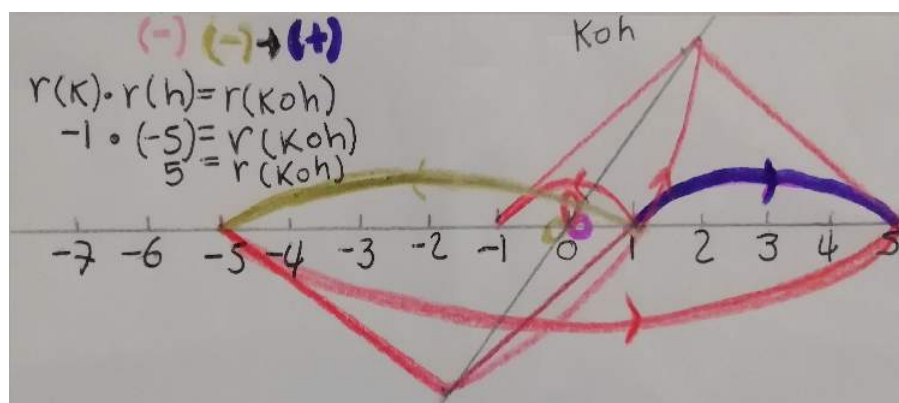 (-) (-)→(+)
koh
r(k)·r(h)=r(koh)
-1·(-5)=r(koh)
5=r(koh)
-7 -6 -5 -4 -3 -2 -1 0 1 2 3 4 5